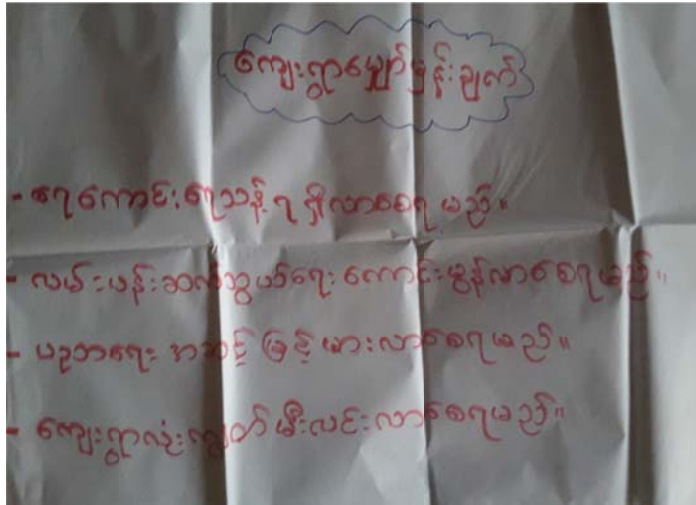 ကျေးရွာမျှော်မှန်းချက်
- ရေကောင်းရေသန့် ရရှိလာစေရမည်။
- လမ်းပန်းဆက်သွယ်ရေး ကောင်းမွန်လာစေရမည်။
- ပညာရေး အဆင့်မြင့်မားလာစေရမည်။
- ကျေးရွာလုံးကျွတ် မီးလင်းလာစေရမည်။